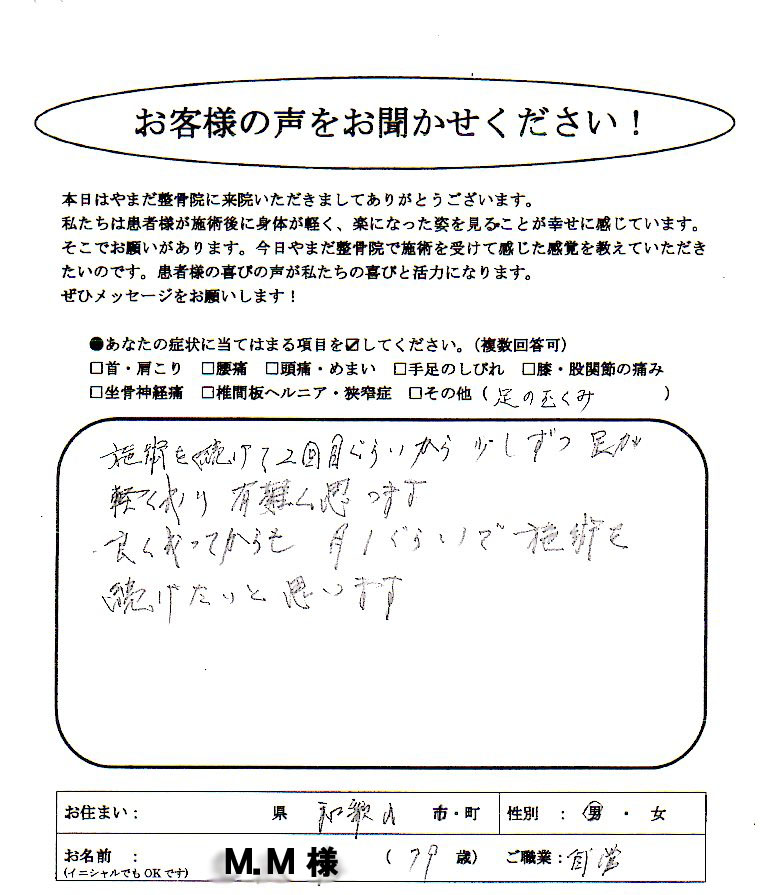 お客様の声をお聞かせください！
本日はやまだ整骨院に来院いただきましてありがとうございます。
私たちは患者様が施術後に身体が軽く、楽になった姿を見ることが幸せに感じています。
そこでお願いがあります。今日やまだ整骨院で施術を受けて感じた感覚を教えていただき
たいのです。患者様の喜びの声が私たちの喜びと活力になります。
ぜひメッセージをお願いします！
●あなたの症状に当てはまる項目を☑してください。（複数回答可）
□首・肩こり □腰痛 □頭痛・めまい □手足のしびれ □膝・股関節の痛み
□坐骨神経痛 □椎間板ヘルニア・狭窄症 □その他（足のむくみ）
施術を続けて2回目ぐらいから少しずつ足が
軽くなり有難く思います
良くなってからも月1ぐらいで施術を
続けたいと思います
お住まい： 県 和歌山 市・町 性別 ： 男 ・ 女
お名前 ： M.M様 （79歳） ご職業：自営
(イニシャルでもOKです)